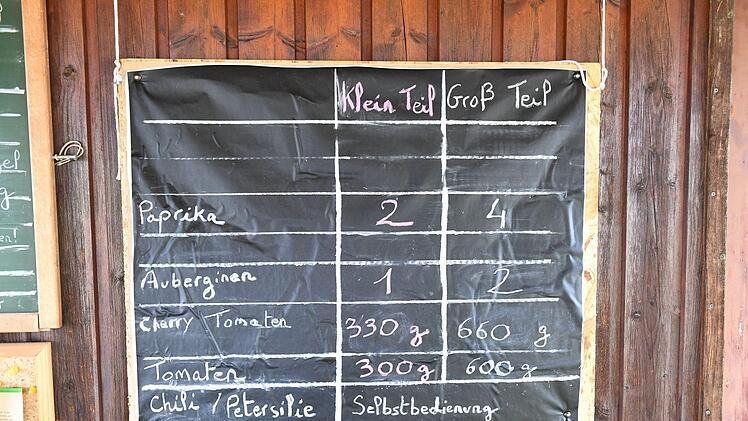 Klein Teil Groß Teil
Paprika 2 4
Auberginen 1 2
Cherry Tomaten 330 g 660 g
Tomaten 300 g 600 g
Chili / Petersilie Selbstbedienung